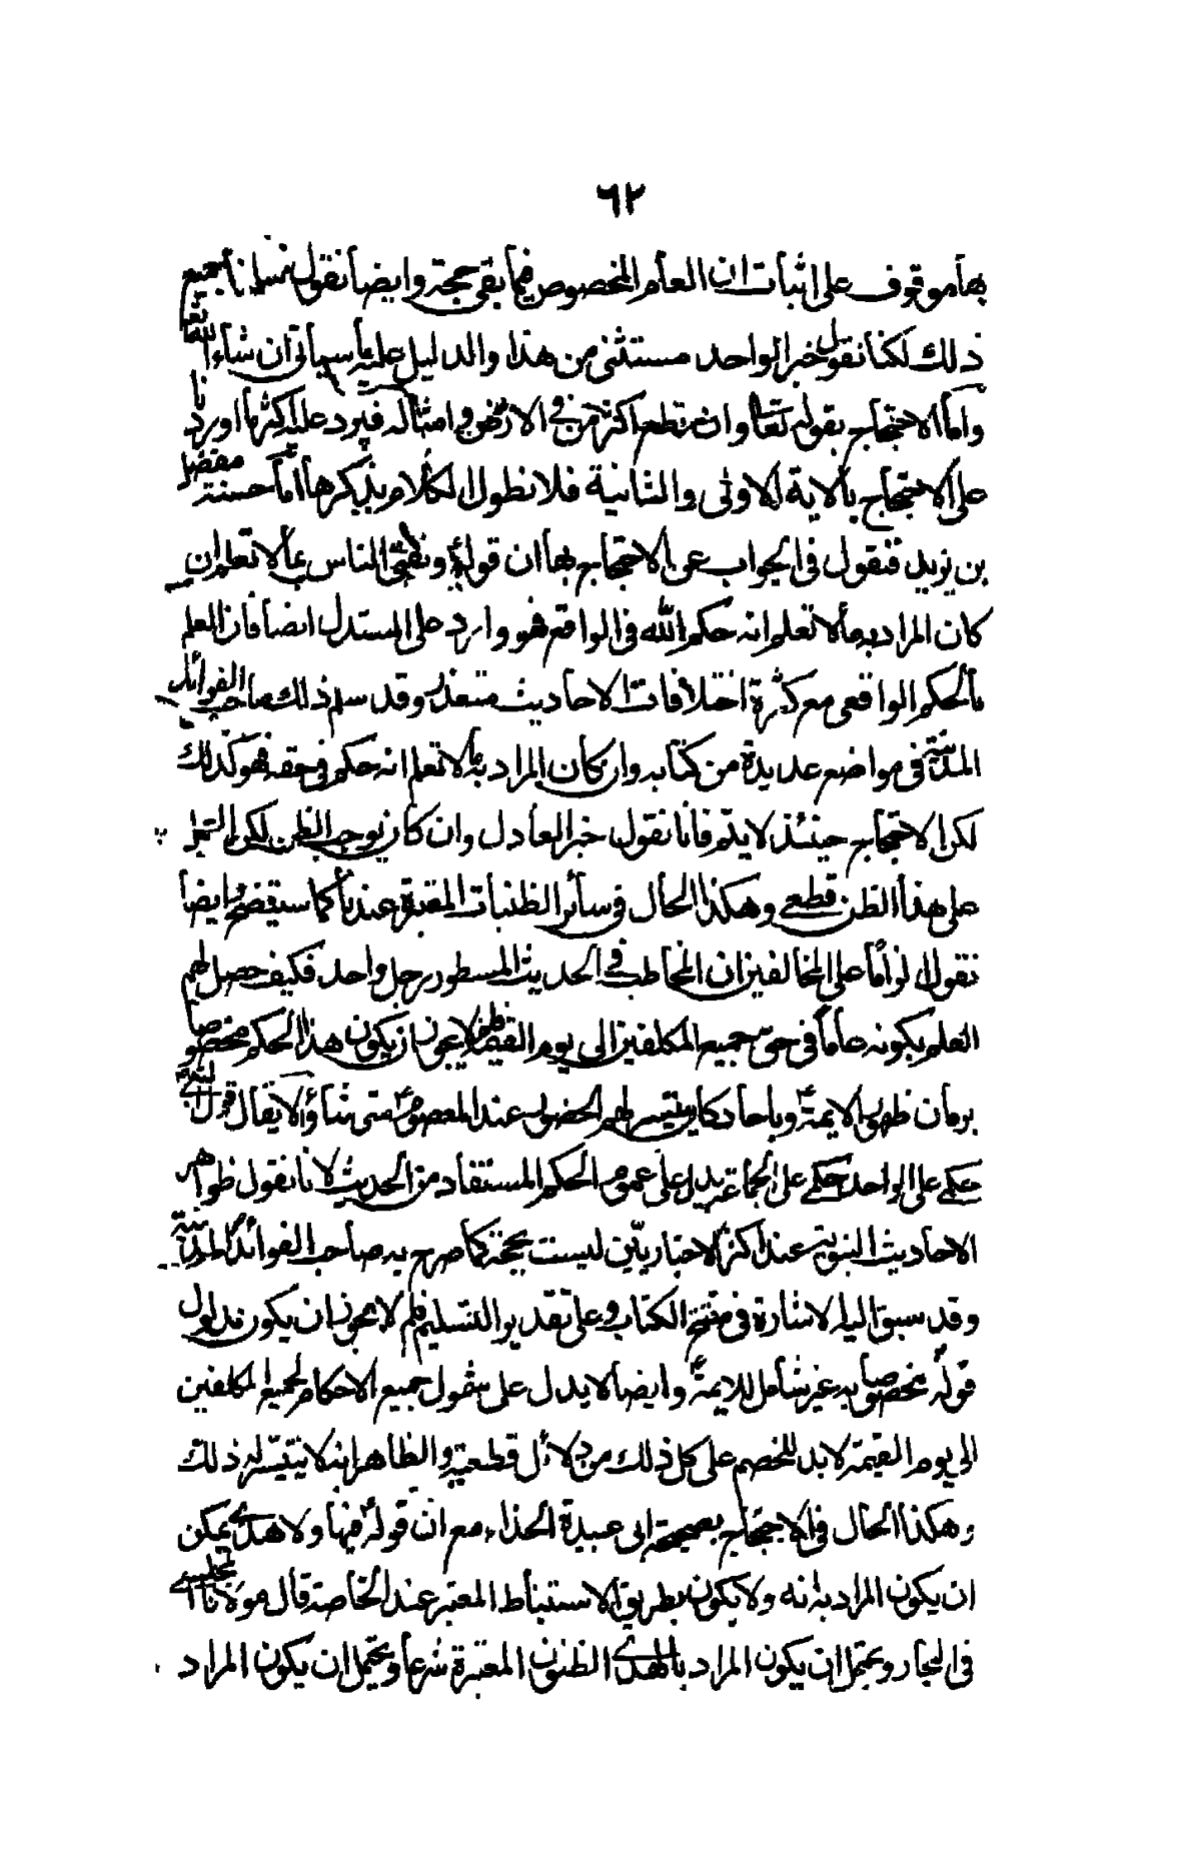 ٦٢
بها موقوف على اثبات ان العام المخصوص فيما بقى حجة وايضا نقول نسلمنا جميع
ذلك لكنا نقول خبر الواحد مستثنى من هذا والدليل عليه ما سياتى ان شاء الله تعا
واما الاحتجاج بقوله تعا وان تطع اكثر من فى الارض وامثاله فيرد عليه اكثر ما اوردنا
على الاحتجاج بالاية الاولى والثانية فلا نطول الكلام بذكرها اما حسنة مفضل
بن يزيد فنقول فى الجواب عن الاحتجاج بها ان قوله وتفتى الناس بما لا تعلم ان
كان المراد به ما لا تعلم انه حكم الله فى الواقع فهو وارد على المستدل ايضا فان العلم
بالحكم الواقعى مع كثرة اختلافات الاحاديث متعذر وقد سلم ذلك صاحب الفوائد
المدنية فى مواضع عديدة من كتابه وان كان المراد به ما لا تعلم انه حكم فى حقه فهو كذلك
لكن الاحتجاج حينئذ لا يتم فانا نقول خبر العادل وان كان يوجب الظن لكن العمل
على هذا الظن قطعى وهكذا الحال فى سائر الظنيات المعتبرة عندنا كما ستقضح وايضا
نقول لزاما على المخالفين ان المخاطب فى الحديث المسطور رجل واحد فكيف حصل لهم
العلم بكونه عاما فى حق جميع المكلفين الى يوم القيمة فلم لا يجوز ان يكون هذا الحكم مخصوصا
بزمان ظهور الايمة ع وباحاد كان يتيسر لهم الحضور عند المعصوم ع متى شاؤا لا يقال قول النبى ص
حكمى على الواحد حكمى على الجماعة يدل على عموم الحكم المستفاد من الحديث لانا نقول ظواهر
الاحاديث النبوية عند اكثر الاخباريين ليست بحجة كما صرح به صاحب الفوائد المدنية
وقد سبق اليه الاشارة فى مفتتح الكتاب وعلى تقدير التسليم فلم لا يجوز ان يكون مدلول
قوله ص مخصوصا به غير شامل للايمة ع وايضا لا يدل على شمول جميع الاحكام لجميع المكلفين
الى يوم القيمة لابد للخصم على كل ذلك من دلائل قطعية والظاهر انه لا يتيسر له ذلك
وهكذا الحال فى الاحتجاج بصحيحة ابى عبيدة الحذاء مع ان قوله ع فيها ولا هدى يمكن
ان يكون المراد به انه ولا يكون بطريق الاستنباط المعتبر عند الخاصة قال مولانا المجلسى
فى البحار ويحتمل ان يكون المراد بالهدى الظنون المعتبرة شرعا ويحتمل ان يكون المراد